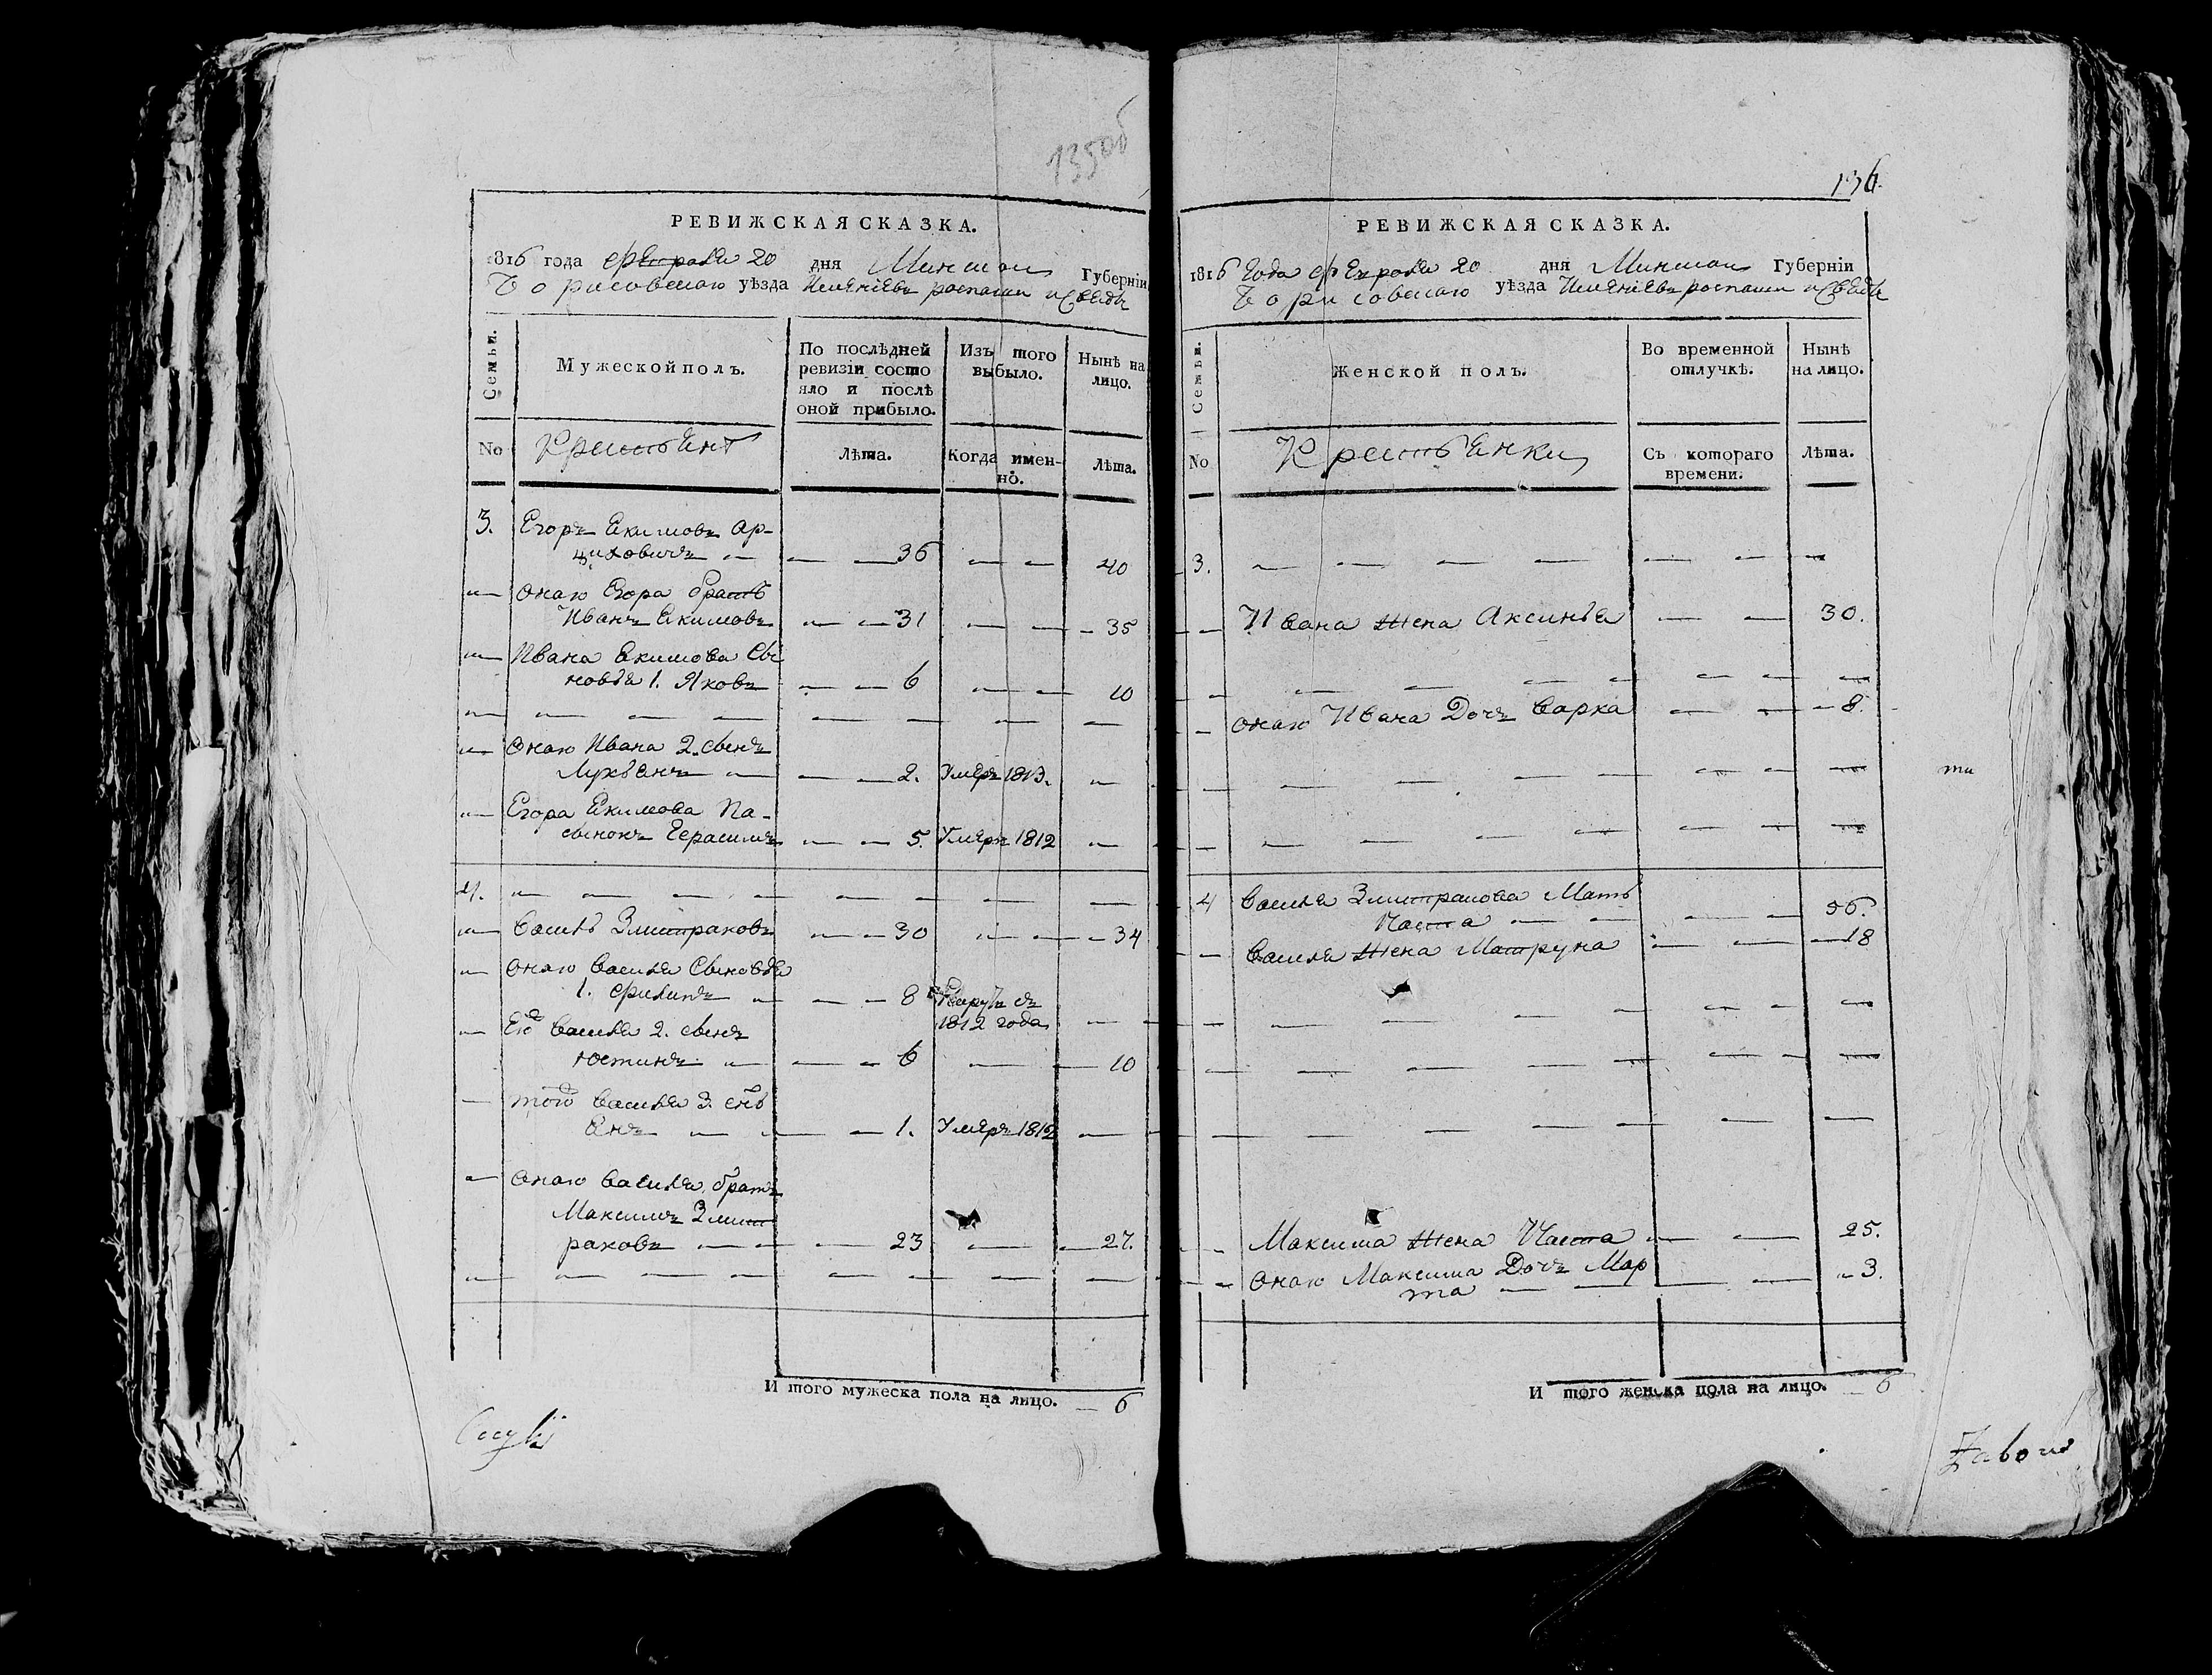 135об
РЕВИЖСКАЯ СКАЗКА.
1816 года февраля 20 дня Минской Губерніи
Борисовскаго уѣзда
Семьи.
Мужеской полъ.
По послѣдней
ревизіи состо
яло и послѣ
оной прибыло.
Изъ того
выбыло.
Нынѣ на
лицо.
No
Крестьянъ
Лѣта.
Когда имен-
но.
Лѣта.
3. Егоръ Екимовъ Ар-
циховичъ — 36 — 40
онаго Егора братъ
Иванъ Екимовъ — 31 — 35
Ивана Екимова Сы
новья 1. Яковъ — 6 — 10
онаго Ивана 2. сынъ
Лукьянъ — 2. Умеръ 1813.
Егора Екимова Па-
сынокъ Герасимъ — 5. Умеръ 1812
4.
Василь Змитраковъ — 30 — 34
онаго Василя Сыновья
1. Филипъ — 8 Рекрутъ съ
1812 года
Его Василя 2. сынъ
юстинъ — 6 — 10
того Василя 3. снъ
Янъ — 1. Умеръ 1812
онаго Василя братъ
Максимъ Змит
раковъ — 23 — 27.
И того мужеска пола на лицо. — 6
136.
РЕВИЖСКАЯ СКАЗКА.
1816 Года февраля 20 дня Минской Губерніи
Борисовскаго уѣзда
Семьи.
Женской полъ.
Во временной
отлучкѣ.
Нынѣ
на лицо.
No
Крестьянки
Съ котораго
времени.
Лѣта.
3.
Ивана жена Аксинья — 30.
онаго Ивана Дочъ Варка — 8.
та
4 Василя Змитракова Мать
Наста — 56.
Василя жена Матруна — 18
Максима жена Наста — 25.
онаго Максима Дочъ Мар — 3.
та
И того женска пола на лицо. — 6